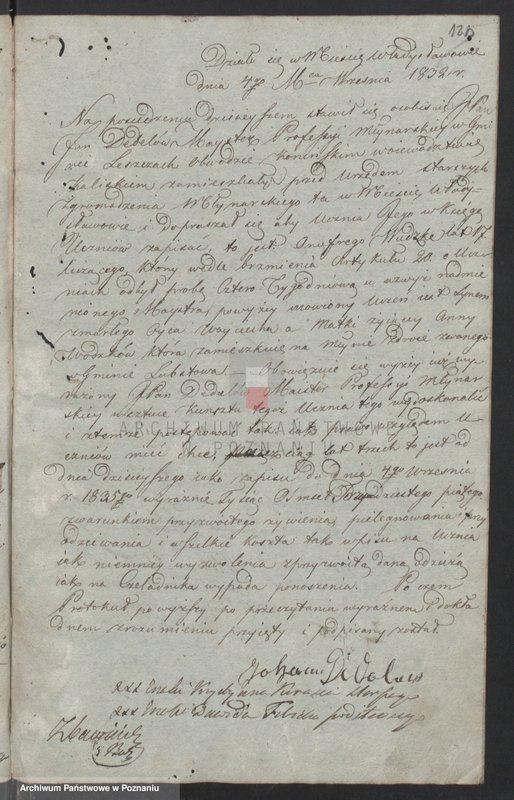 120
Działo się w Mieście Władysławowie
dnia 4go Mca Września 1832 r.
Na posiedzeniu dzisiejszem stawił się osobiście JPan
Jan Dedelow Majster Professyi Młynarskiey w Gmi
nie Leszczach Obwodzie Konińskim Woiewództwie
Kaliskiem zamieszkały, przed Urzędem starszych
Zgromadzenia Młynarskiego tu w Mieście Włady-
sławowie i dopraszał się aby Ucznia Jego w Księgę
Uczniów zapisać, to jest Onufrego Wudzkę lat 17
liczącego, który wedle brzmienia Artykułu 20. o Ucz
niach odbył próbę Cztero Tygodniową u wzwyż nadmie
nionego Majstra, powyży mowiony Uczeń jest Synem
zmarłego Oyca Woyciecha a Matki żyjący Anny
Wodzków która zamieszkuie na Młynie Zdroie zwanego
w Gminie Lubstowa. Obowięzuie się wyży wy
rażony JPan Dedelow Maister Professyi Młynar
skiey w sztuce kunsztu tegoż Ucznia tego wydoskonalić
i z temże postępować tak jak Prawo względem U
czniów mieć chce, przez ciąg lat trzech to jest od
dnia dzisieyszego jako zapisu do dnia 4go Września
r. 1835 wyraźnie Tysiąc Ośmset Trzydziestego piątego
z warunkiem przyzwoitego żywienia, pielęgnowania, przy
odziewania i wszelkie koszta tak wpisu na Ucznia
jak niemniey wyzwolenia z przyzwoitą daną odzieżą
jak na Czeladnika wypada ponoszenia. Po czem
Protokuł powyższy po przeczytaniu wyraźnem i dokła
dnem zrozumieniu przyjęty i podpisany został.
Johann Didelow
xxx Znaki Krystyana Starszego
xxx Znaki Dawida podstarszy
ARCHIWUM PAŃSTWOWE
W POZNANIU
Archiwum Państwowe w Poznaniu